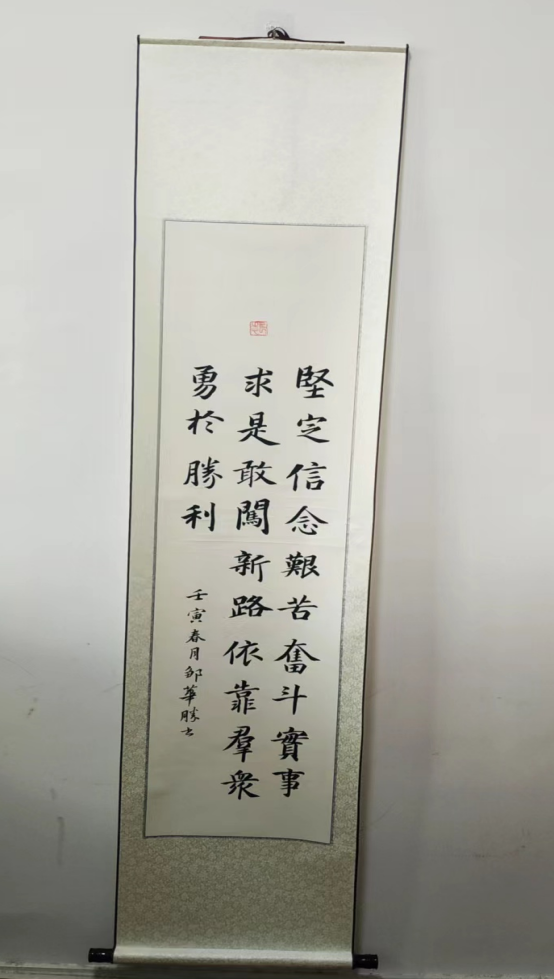 堅定信念艱苦奮鬥實事
求是敢闖新路依靠羣衆
勇於勝利
壬寅春月鄒華勝書